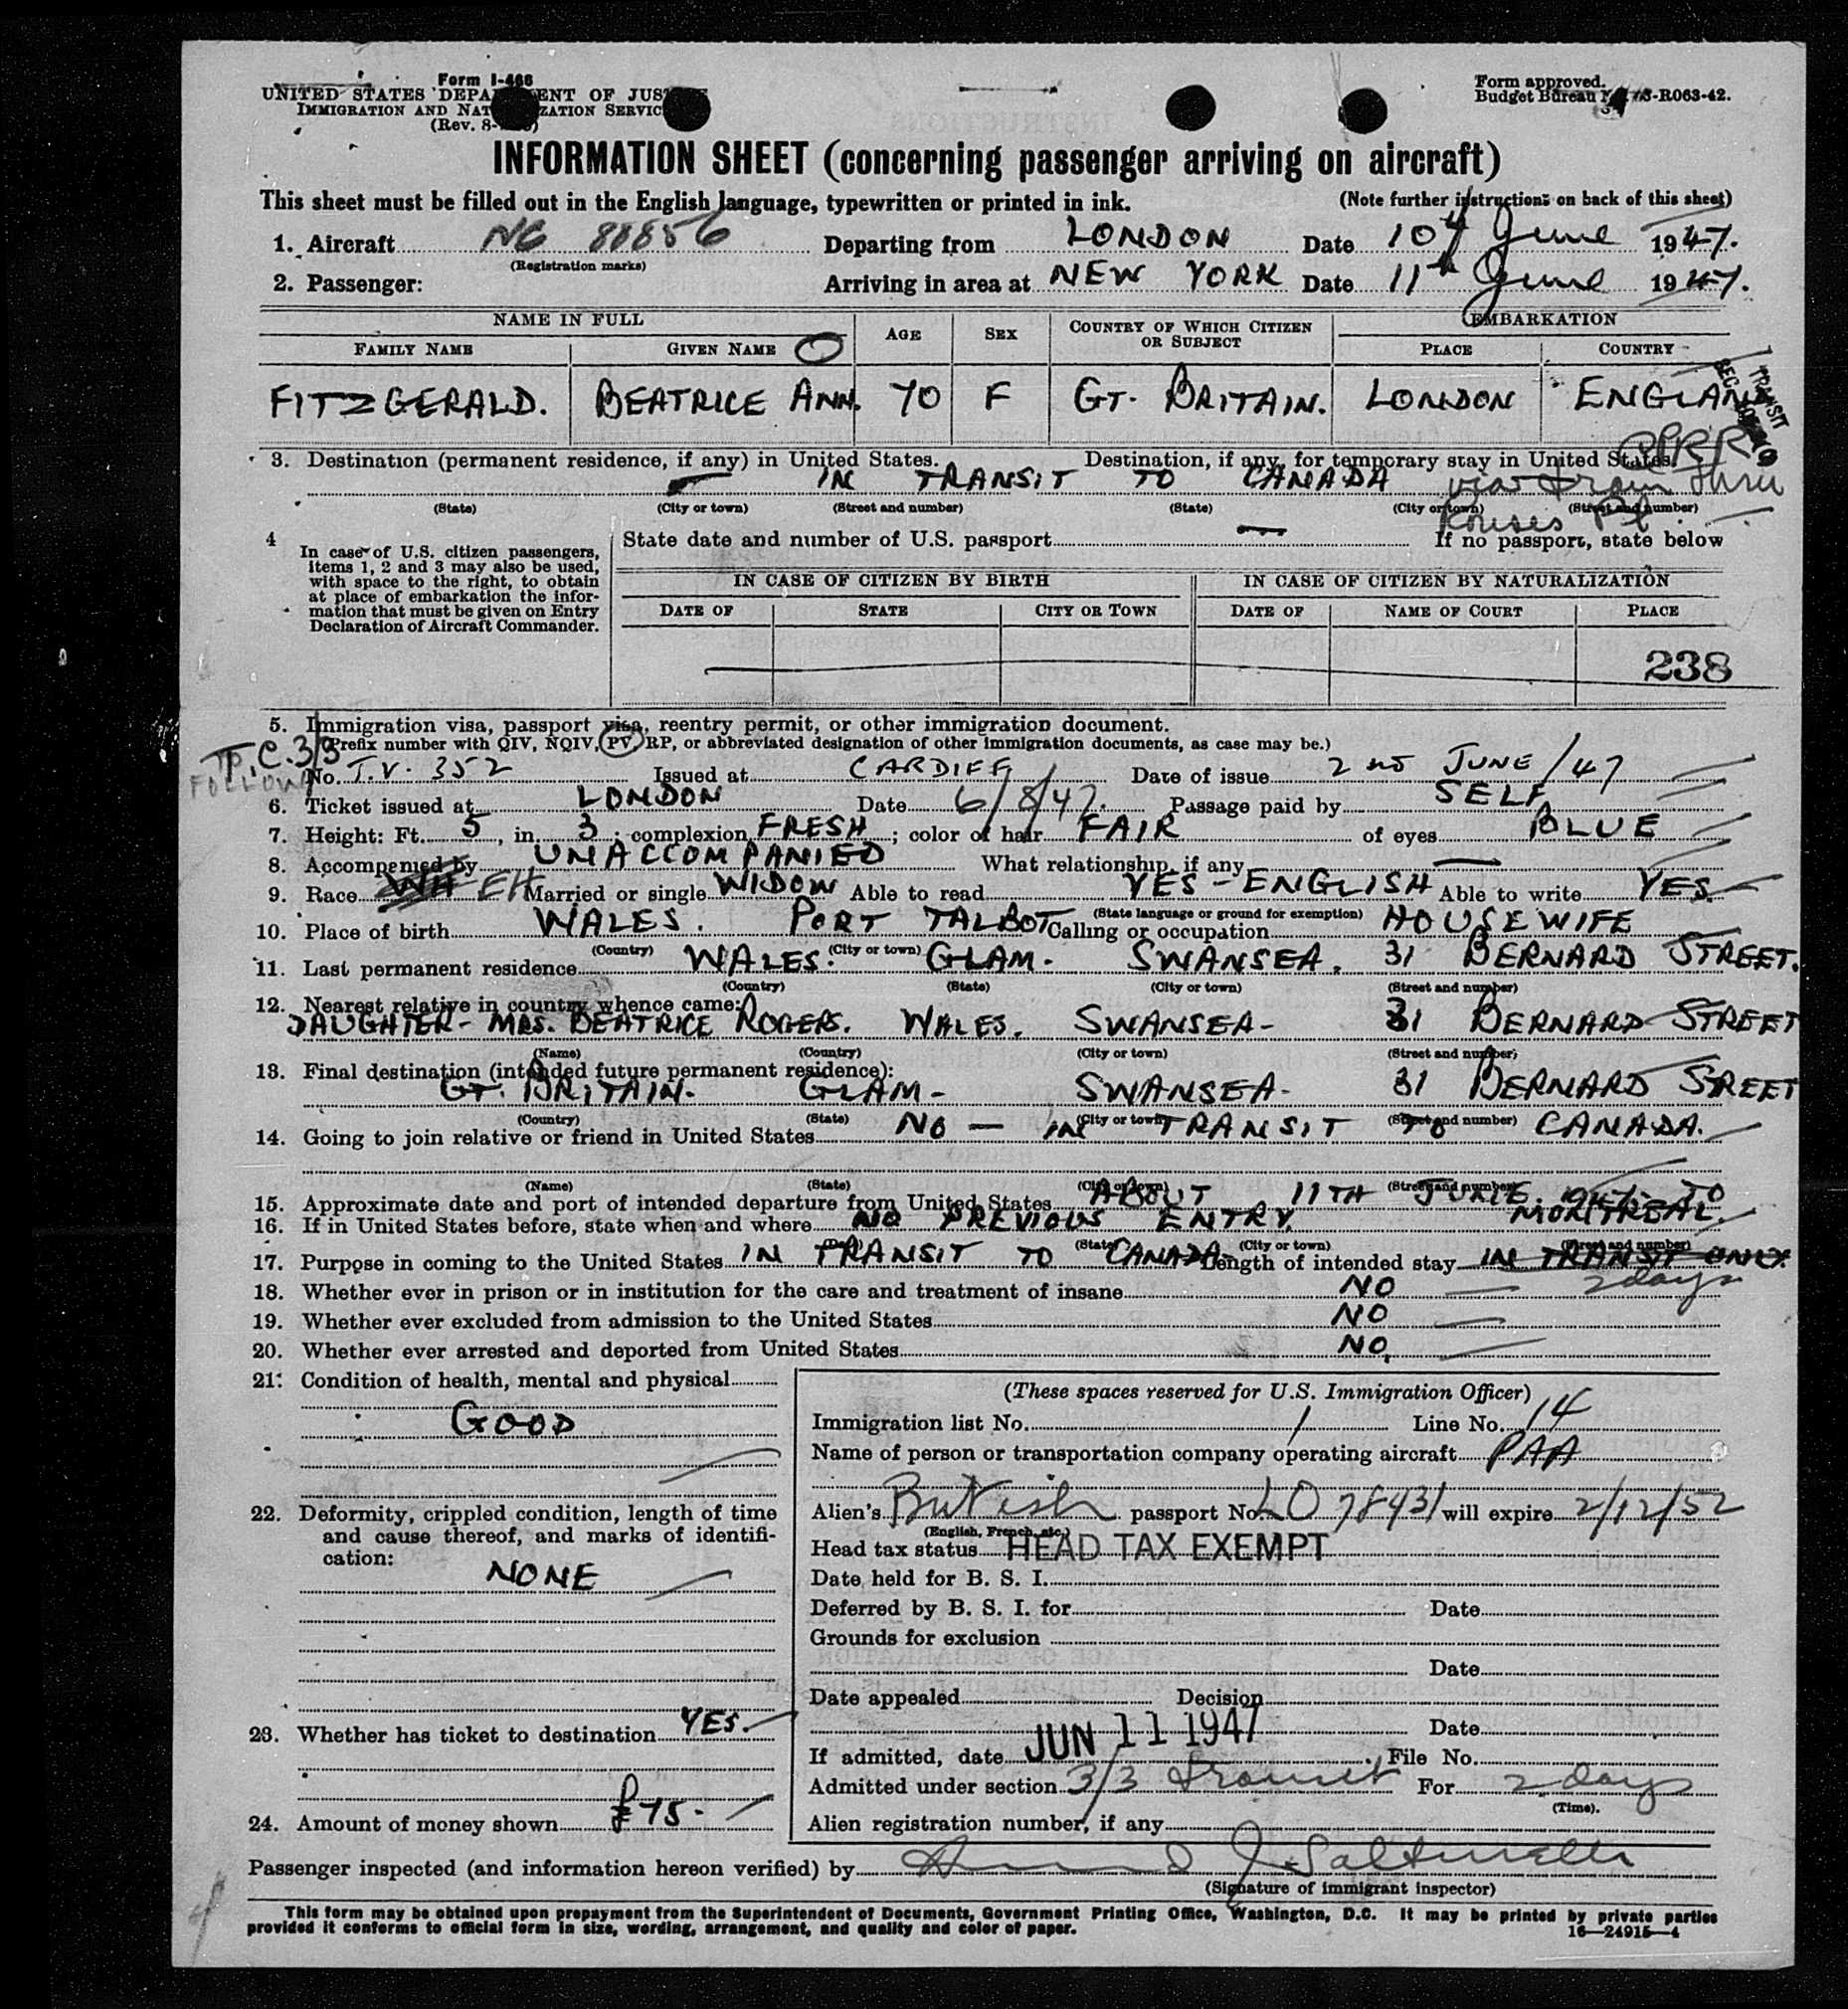 Form I-466
UNITED STATES DEPARTMENT OF JUSTICE
IMMIGRATION AND NATURALIZATION SERVICE
(Rev. 8-
Form approved.
Budget Bureau No. 43-R063-42.
INFORMATION SHEET (concerning passenger arriving on aircraft)
This sheet must be filled out in the English language, typewritten or printed in ink. (Note further instructions on back of this sheet)
1. Aircraft NC 88856 Departing from LONDON Date 10th June 1947.
(Registration marks)
2. Passenger: Arriving in area at NEW YORK Date 11th June 1947.
NAME IN FULL AGE SEX COUNTRY OF WHICH CITIZEN OR SUBJECT EMBARKATION
FAMILY NAME GIVEN NAME PLACE COUNTRY
FITZGERALD. BEATRICE ANN. 70 F GT. BRITAIN. LONDON ENGLAND
TRANSIT
3. Destination (permanent residence, if any) in United States. Destination, if any, for temporary stay in United States.
IN TRANSIT TO CANADA via train thru
(State) (City or town) (Street and number) (State) (City or town) (Street and number)
Rouses Pt.
4 In case of U.S. citizen passengers, items 1, 2 and 3 may also be used, with space to the right, to obtain at place of embarkation the information that must be given on Entry Declaration of Aircraft Commander.
State date and number of U.S. passport If no passport, state below
IN CASE OF CITIZEN BY BIRTH IN CASE OF CITIZEN BY NATURALIZATION
DATE OF STATE CITY OR TOWN DATE OF NAME OF COURT PLACE
238
5. Immigration visa, passport visa, reentry permit, or other immigration document.
(Prefix number with QIV, NQIV, PV, RP, or abbreviated designation of other immigration documents, as case may be.)
No. T.V. 352 Issued at CARDIFF Date of issue 2ND JUNE/47
6. Ticket issued at LONDON Date 6/8/47. Passage paid by SELF
7. Height: Ft. 5, in. 3; complexion FRESH; color of hair FAIR of eyes BLUE
8. Accompanied by UNACCOMPANIED What relationship, if any —
9. Race WH EH Married or single WIDOW Able to read YES - ENGLISH Able to write YES.
(State language or ground for exemption)
10. Place of birth WALES. PORT TALBOT Calling or occupation HOUSEWIFE
(Country) (City or town)
11. Last permanent residence WALES. GLAM. SWANSEA. 31 BERNARD STREET.
(Country) (State) (City or town) (Street and number)
12. Nearest relative in country whence came:
DAUGHTER - MRS. BEATRICE ROGERS. WALES. SWANSEA - 31 BERNARD STREET
(Name) (Country) (City or town) (Street and number)
13. Final destination (intended future permanent residence):
GT. BRITAIN. GLAM - SWANSEA - 31 BERNARD STREET
(Country) (State) (City or town) (Street and number)
14. Going to join relative or friend in United States NO — IN TRANSIT TO CANADA.
(Name) (State) (City or town) (Street and number)
15. Approximate date and port of intended departure from United States ABOUT 11TH JUNE. 1947. TO MONTREAL.
16. If in United States before, state when and where NO PREVIOUS ENTRY.
(State) (City or town) (Street and number)
17. Purpose in coming to the United States IN TRANSIT TO CANADA Length of intended stay IN TRANSIT ONLY.
2 days
18. Whether ever in prison or in institution for the care and treatment of insane NO
19. Whether ever excluded from admission to the United States NO
20. Whether ever arrested and deported from United States NO.
21. Condition of health, mental and physical
GOOD
22. Deformity, crippled condition, length of time and cause thereof, and marks of identification:
NONE
23. Whether has ticket to destination YES.
24. Amount of money shown £75-
(These spaces reserved for U.S. Immigration Officer)
Immigration list No. 1 Line No. 14
Name of person or transportation company operating aircraft PAA
Alien's British passport No. LO 78431 will expire 2/12/52
(English, French, etc.)
Head tax status HEAD TAX EXEMPT
Date held for B. S. I.
Deferred by B. S. I. for Date
Grounds for exclusion
Date
Date appealed Decision
Date
If admitted, date JUN 11 1947 File No.
Admitted under section 3/3 transit For 2 days
(Time).
Alien registration number, if any
Passenger inspected (and information hereon verified) by
(Signature of immigrant inspector)
This form may be obtained upon prepayment from the Superintendent of Documents, Government Printing Office, Washington, D.C. It may be printed by private parties
provided it conforms to official form in size, wording, arrangement, and quality and color of paper. 16—24915—4